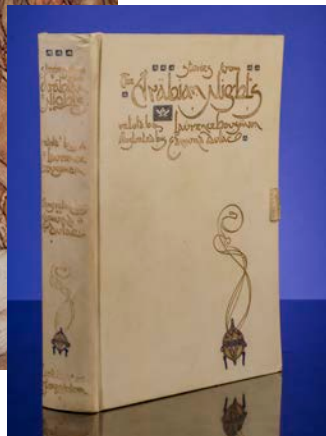 stories from
The Arabian Nights
retold by Laurence Housman
illustrated by Edmund Dulac
Stories from
The Arabian
Nights
retold by
Laurence
Housman